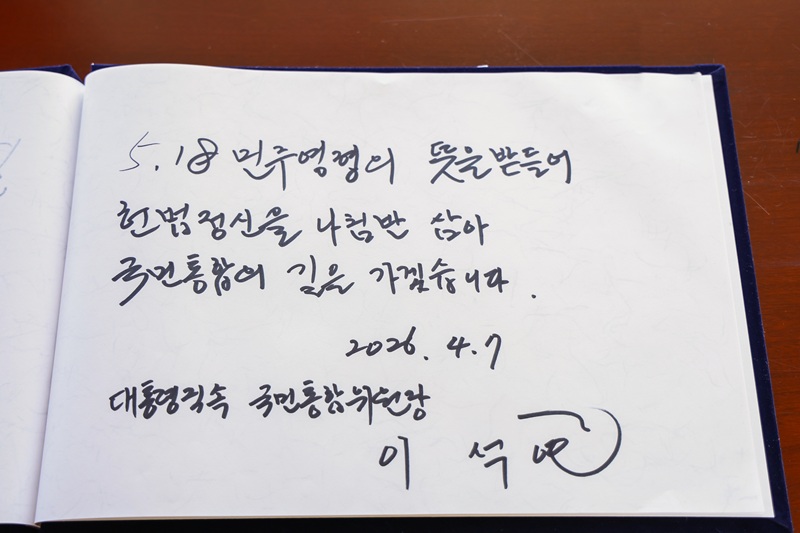 5.18 민주영령의 뜻을 받들어
헌법정신을 나침반 삼아
국민통합의 길을 가겠습니다.
2026. 4. 7
대통령직속 국민통합위원장
이 석연